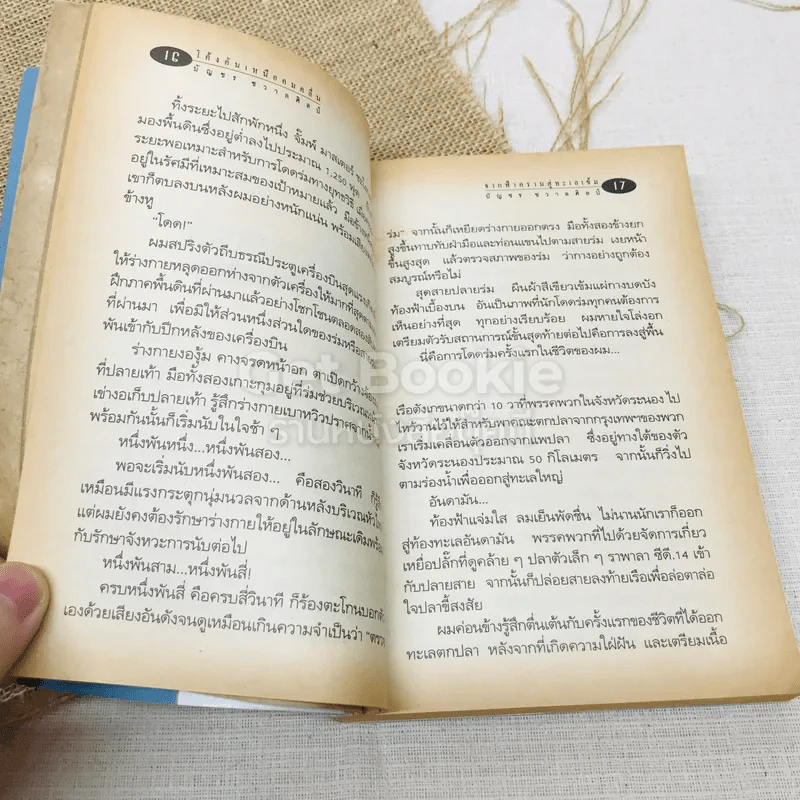 16
โค้งคันเหนือคนคลื่น
บัญชร ชวาลศิลป์
ทิ้งระยะไปสักพักหนึ่ง จั๊มพ์ มาสเตอร์
มองพื้นดินซึ่งอยู่ต่ำลงไปประมาณ 1,250 ฟุต
ระยะพอเหมาะสำหรับการโดดร่มทางยุทธวิธี
อยู่ในรัศมีที่เหมาะสมของเป้าหมายแล้ว มือข้าง
เขาก็ตบลงบนหลังผมอย่างหนักแน่น พร้อมเสียง
ข้างหู
"โดด!"
ผมสปริงตัวถีบธรณีประตูเครื่องบินสุดแรง
ให้ร่างกายหลุดออกห่างจากตัวเครื่องให้มากที่สุด
ฝึกภาคพื้นดินที่ผ่านมาแล้วอย่างโชกโชนตลอดสอง
ที่ผ่านมา เพื่อมิให้ส่วนหนึ่งส่วนใดของร่มหรือ
พันเข้ากับปีกหลังของเครื่องบิน
ร่างกายงองุ้ม คางจรดหน้าอก ตาเปิดกว้าง
ที่ปลายเท้า มือทั้งสองเกาะกุมอยู่ที่ร่มช่วยบริเวณ
เข่างอเก็บปลายเท้า รู้สึกร่างกายเบาหวิวปราศจาก
พร้อมกันนั้นก็เริ่มนับในใจช้า ๆ
หนึ่งพันหนึ่ง...หนึ่งพันสอง...
พอจะเริ่มนับหนึ่งพันสอง... คือสองวินาที ก็รู้
เหมือนมีแรงกระตุกนุ่มนวลจากด้านหลังบริเวณหัว
แต่ผมยังคงต้องรักษาร่างกายให้อยู่ในลักษณะเดิมพร้อม
กับรักษาจังหวะการนับต่อไป
หนึ่งพันสาม...หนึ่งพันสี่!
ครบหนึ่งพันสี่ คือครบสี่วินาที ก็ร้องตะโกนบอกตัว
เองด้วยเสียงอันดังจนดูเหมือนเกินความจำเป็นว่า "ตรวจ
จากฟ้าครามสู่ทะเลเข้ม
บัญชร ชวาลศิลป์
17
ร่ม" จากนั้นก็เหยียดร่างกายออกตรง มือทั้งสองข้างยก
สูงขึ้นทาบทับฝ่ามือและท่อนแขนไปตามสายร่ม เงยหน้า
ขึ้นสูงสุด แล้วตรวจสภาพของร่ม ว่ากางอย่างถูกต้อง
สมบูรณ์หรือไม่
สุดสายปลายร่ม ผืนผ้าสีเขียวเข้มแผ่กางบดบัง
ท้องฟ้าเบื้องบน อันเป็นภาพที่นักโดดร่มทุกคนต้องการ
เห็นอย่างที่สุด ทุกอย่างเรียบร้อย ผมหายใจโล่งอก
เตรียมตัวรับสถานการณ์ขั้นสุดท้ายต่อไปคือการลงสู่พื้น
นี่คือการโดดร่มครั้งแรกในชีวิตของผม...
เรือดังเกขนาดกว่า 10 วาที่พรรคพวกในจังหวัดระนอง ไป
ไหว้วานไว้ให้สำหรับพาคณะตกปลาจากกรุงเทพฯของพวก
เราเริ่มเคลื่อนตัวออกจากแพปลา ซึ่งอยู่ทางใต้ของตัว
จังหวัดระนองประมาณ 50 กิโลเมตร จากนั้นก็วิ่งไป
ตามร่องน้ำเพื่อออกสู่ทะเลใหญ่
อันดามัน...
ท้องฟ้าแจ่มใส ลมเย็นพัดชื่น ไม่นานนักเราก็ออก
สู่ท้องทะเลอันดามัน พรรคพวกที่ไปด้วยจัดการเกี่ยว
เหยื่อปลั๊กที่ดูคล้าย ๆ ปลาตัวเล็ก ๆ ราพาลา ซีดี.14 เข้า
กับปลายสาย จากนั้นก็ปล่อยสายลงท้ายเรือเพื่อล่อตาล่อ
ใจปลาขี้สงสัย
ผมค่อนข้างรู้สึกตื่นเต้นกับครั้งแรกของชีวิตที่ได้ออก
ทะเลตกปลา หลังจากที่เกิดความใฝ่ฝัน และเตรียมเนื้อ
Get Bookie